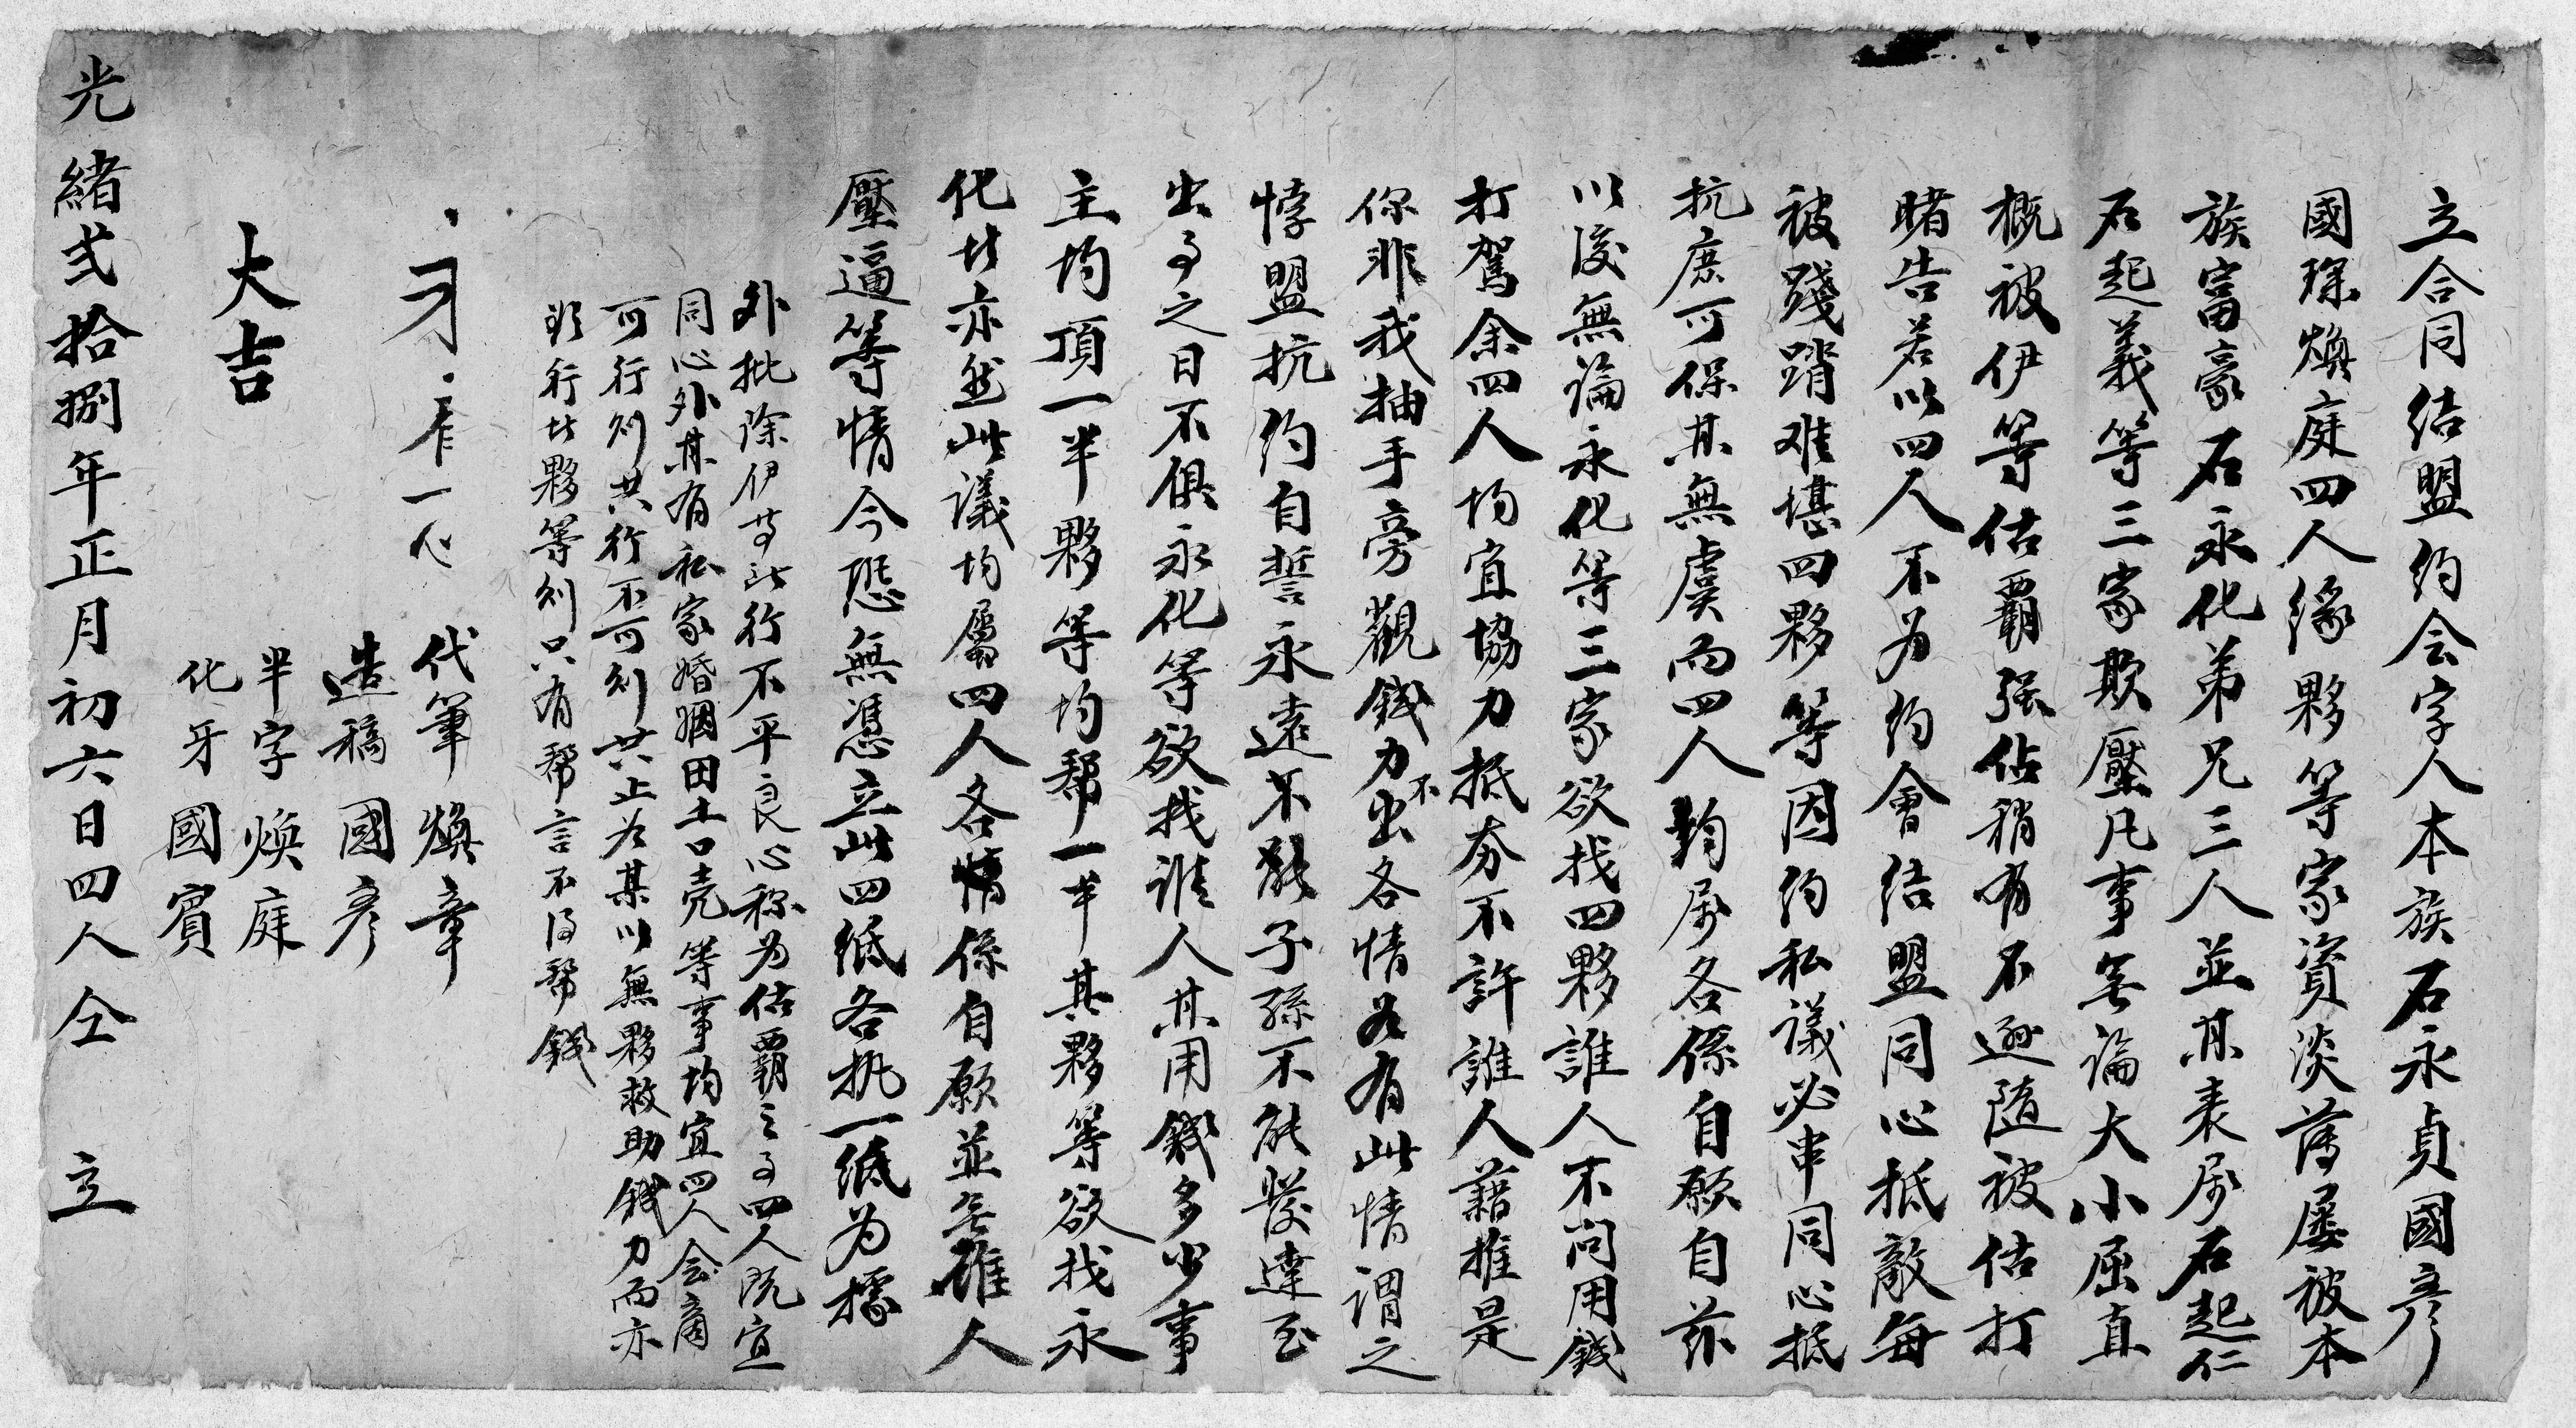 立合同结盟约会字人本族石永貞國彦
國琛煥庭四人缘夥等家資淡薄屡被本
族富豪石永化弟兄三人並其表属石起仁
石起義等三家欺壓凡事無論大小屈直
概被伊等估霸强佔稍有不遜随被估打
睹告若以四人不为约會结盟同心抵敵每
被踐踏难堪四夥等因约私議必串同心抵
抗庶可保其無虞而四人均属各係自願自兹
以後無論永化等三家欲找四夥誰人不问用錢
打駕余四人均宜協力抵夯不許誰人藉推是
你非我抽手旁觀錢力不出各情若有此情謂之
悖盟抗约自誓永遠不敢子孫不能發達至
出事之日不俱永化等欲找誰人其用錢多少事
主均頂一半夥等均帮一半其夥等欲找永
化廿亦然此議均屬四人各情係自願並無誰人
壓逼等情今恐無憑立此四纸各执一纸为據
外批除伊等此行不平良心称为估霸之事四人既宜
同心外其有私家婚姻田土口壳等事均宜四人会商
可行则共行不可则共止若某以無夥救助錢力而亦
欲行廿夥等则只有帮言不得帮錢
一心
代筆煥章
造稿國彦
大吉
半字煥庭
化牙國賓
光緒弍拾捌年正月初六日四人仝 立